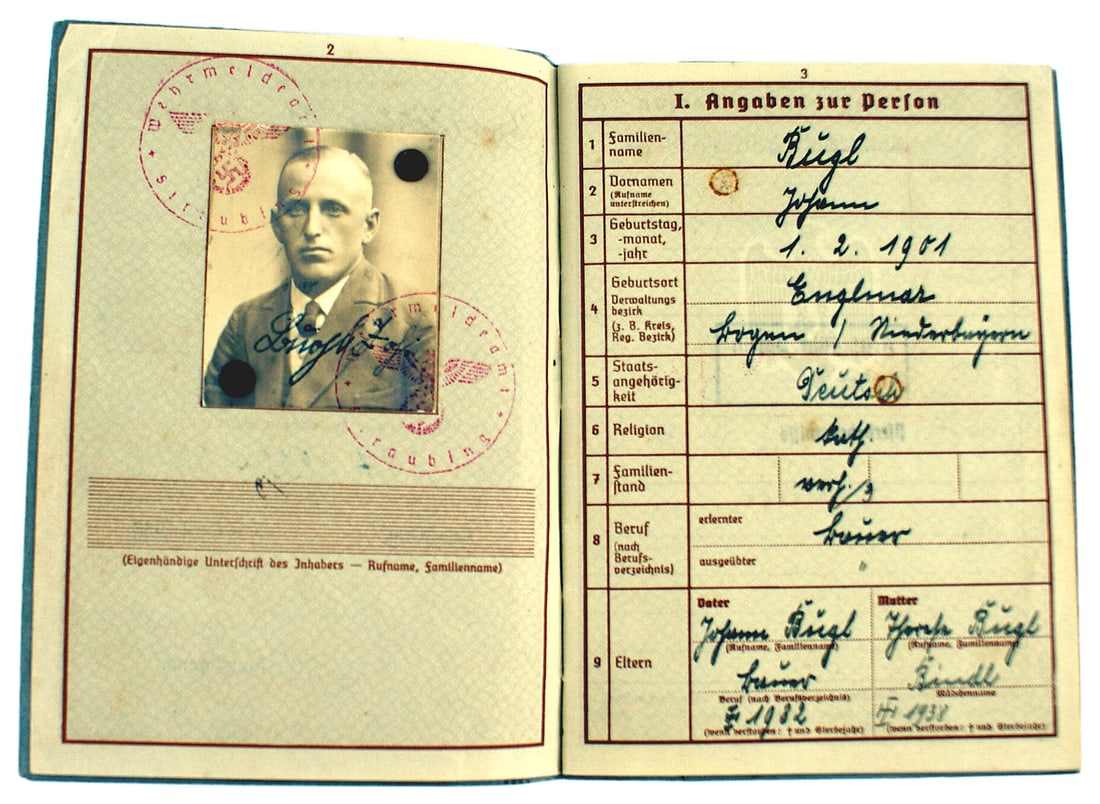 2
Wehrmeldeamt
Straubing
Wehrmeldeamt
Straubing
(Eigenhändige Unterschrift des Inhabers — Rufname, Familienname)
3
I. Angaben zur Person
1 Familien-
name
Kugl
2 Vornamen
(Rufname
unterstreichen)
Johann
3 Geburtstag,
-monat,
-jahr
1. 2. 1901
4 Geburtsort
Verwaltungs
bezirk
(z. B. Kreis,
Reg. Bezirk)
Englmar
Bogen / Niederbayern
5 Staats-
angehörig-
keit
Deutsch
6 Religion
kath.
7 Familien-
stand
verh.
8 Beruf
(nach
Berufs-
verzeichnis)
erlernter
Bauer
ausgeübter
"
9 Eltern
Vater
Johann Kugl
(Rufname, Familienname)
Bauer
Beruf (nach Berufsverzeichnis)
1932
(wenn verstorben: † und Sterbejahr)
Mutter
Therese Kugl
(Rufname, Familienname)
Kindl
Mädchenname
1938
(wenn verstorben: † und Sterbejahr)